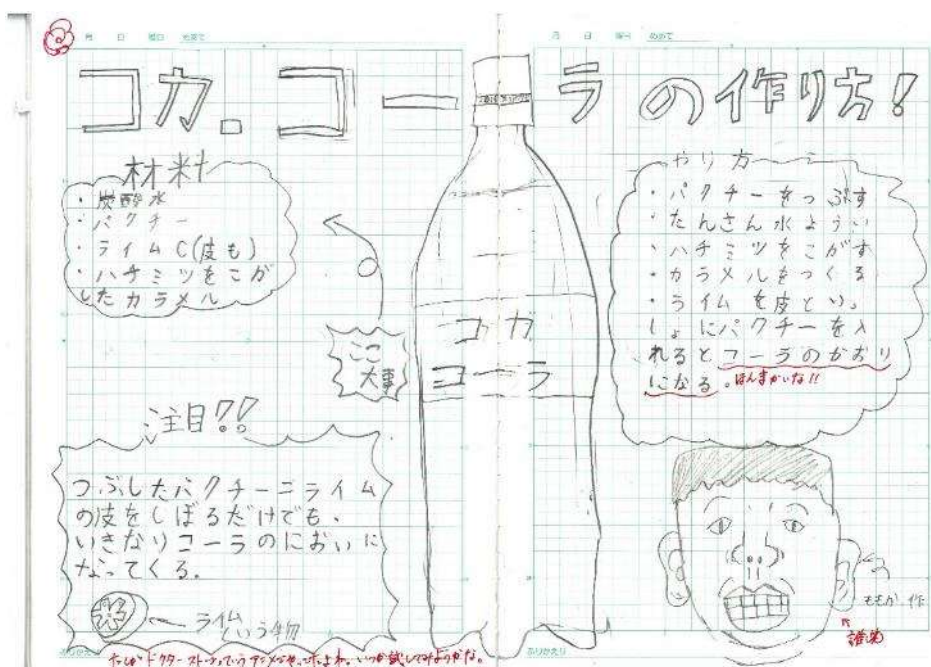 月 日 曜日 めあて
月 日 曜日 めあて
コカ.コーラの作り方!
材料
・炭酸水
・パクチー
・ライムC(皮も)
・ハチミツをこが
したカラメル
ここ
大事
コカ
コーラ
やり方
・パクチーをつぶす
・たんさん水ようい
・ハチミツをこがす
・カラメルをつくる
・ライムを皮といっ
しょにパクチーを入
れるとコーラのかおり
になる。ほんまかいな!!
注目??
つぶしたパクチーニライム
の皮をしぼるだけでも、
いきなりコーラのにおいに
なってくる.
ライム
という物
ももか 作
誰や
ふりかえり
ふりかえり
たしかドクターストーンっていうアニメでやってたよね。いつか試してみようかな。